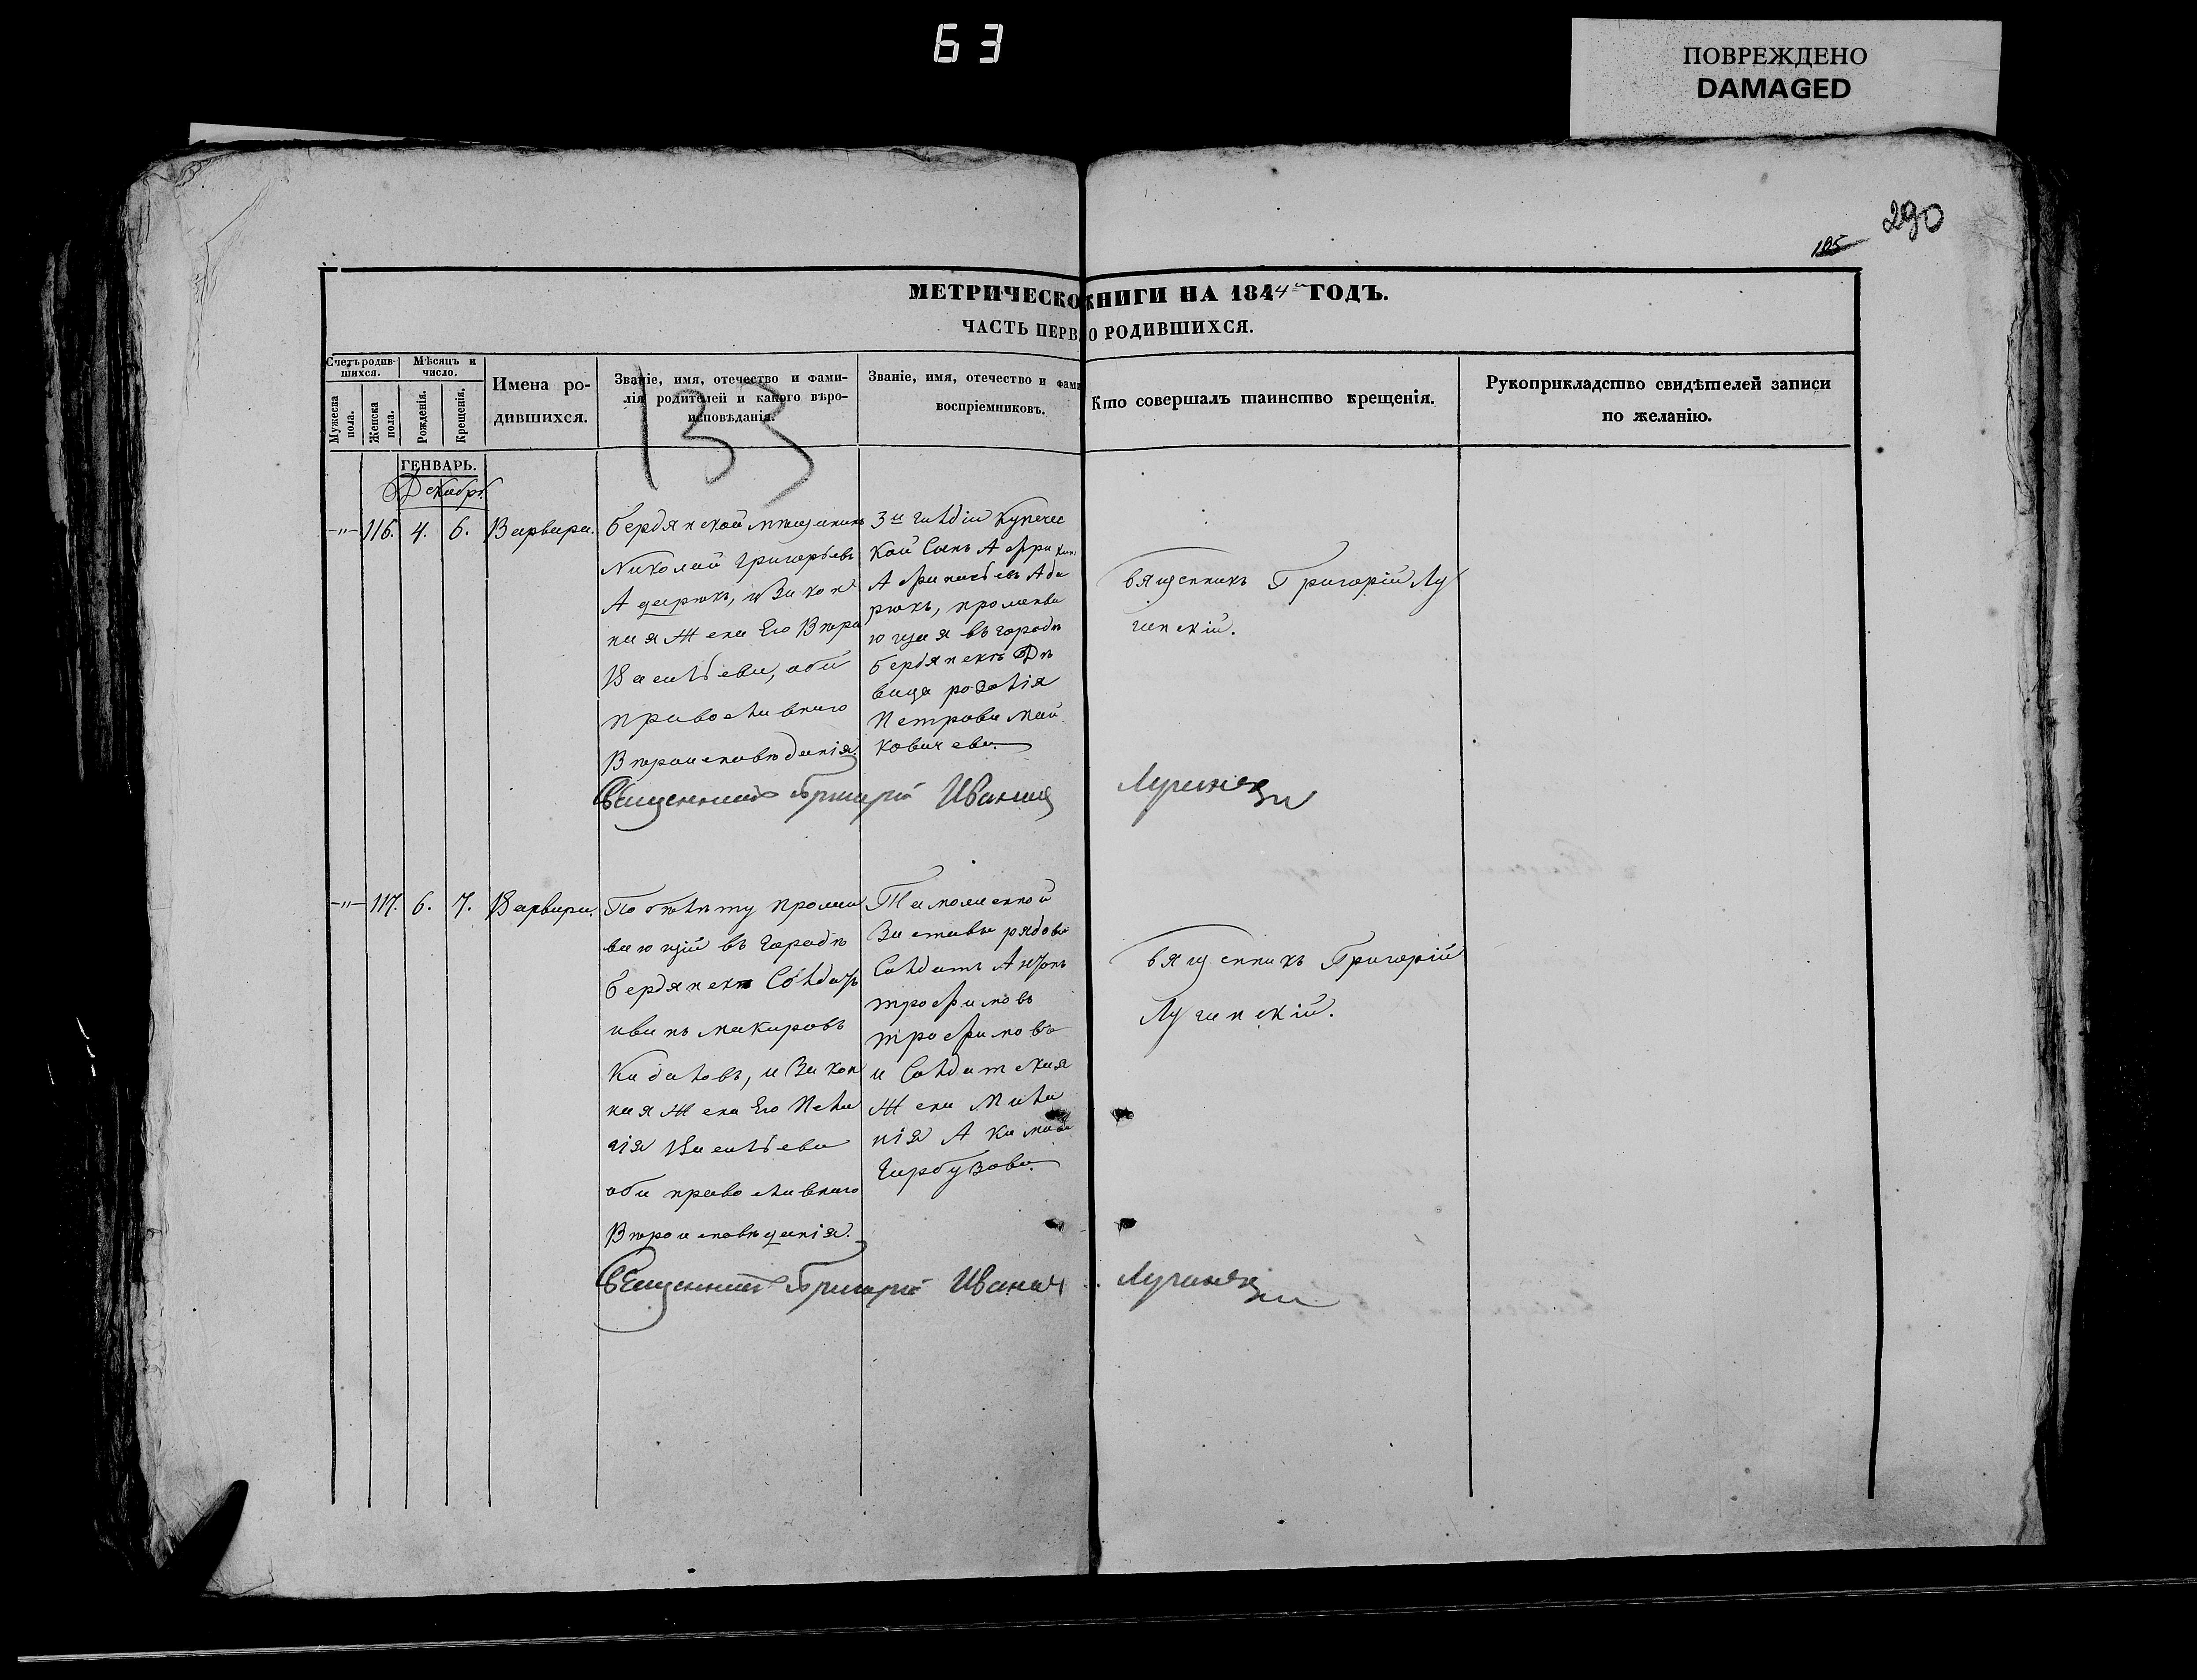 63
ПОВРЕЖДЕНО
DAMAGED
290
195
МЕТРИЧЕСКО КНИГИ НА 1844й ГОДЪ.
ЧАСТЬ ПЕРВ О РОДИВШИХСЯ.
Счетъ родив-
шихся.
Мѣсяцъ и
число.
Мужеска
пола.
Женска
пола.
Рожденія.
Крещенія.
Имена ро-
дившихся.
Званіе, имя, отечество и фами-
лія родителей и какого вѣро-
исповѣданія.
Званіе, имя, отечество и фами
воспріемниковъ.
Кто совершалъ таинство крещенія.
Рукоприкладство свидѣтелей записи
по желанію.
133
ГЕНВАРЬ.
Декабрь
-"- 116. 4. 6. Варвара.
бердянской мѣщанинъ
Николай Григорьевъ
и Закон
ная Жена Его Вѣра
Васильева, оба
православнаго
Вѣроисповѣданія.
3й гильдіи Купечес
кой Сынъ
рюкъ, прожива
ющая въ городѣ
бердянскѣ Дѣ
вица розалія
Петрова Май
ковичева.
Священникъ Григорій Лу
гинскій.
Священникъ Григорій Иванич Лугинскій
-"- 117. 6. 7. Варвара.
По билѣту прожи
вающій въ городѣ
бердянскѣ Солдатъ
иванъ макаровъ
Кабаловъ, и Закон
ная Жена Его Пела
гія Васильева
оба православнаго
Вѣроисповѣданія.
Таможенной
Заставы рядовы
Солдатъ Антонъ
трофимовъ
трофимовъ
и Солдатская
Жена Мила
нія Акимова
Гарбузова.
Священникъ Григорій
Лугинскій.
Священникъ Григорій Иванич Лугинскій